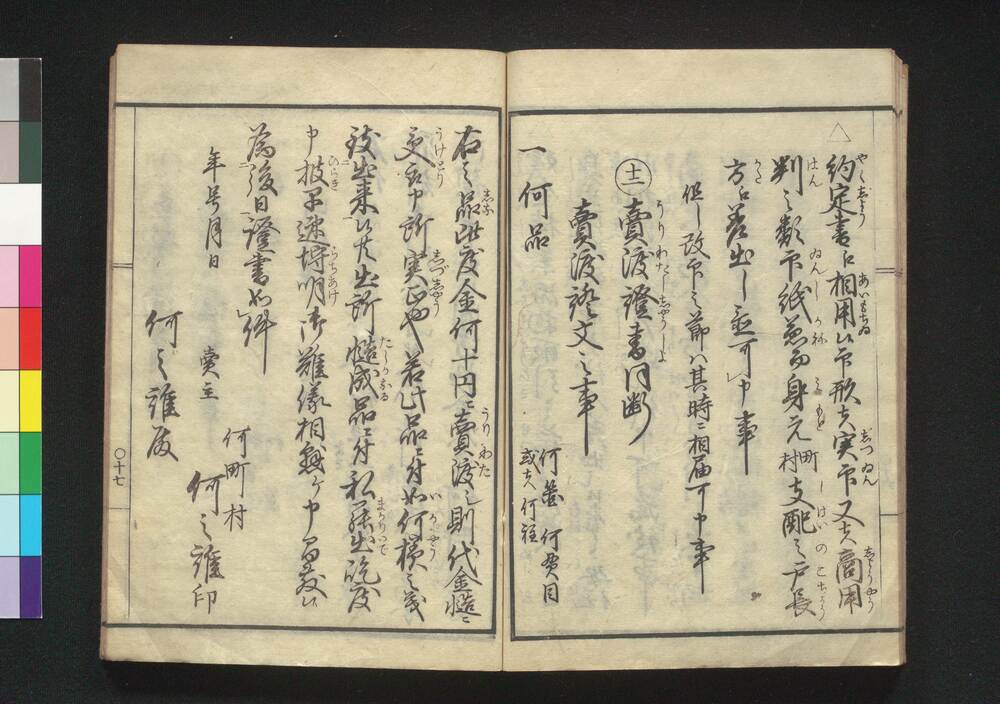 △
約定書ニ相用候印形者実印又者商用
判之類印紙兼而身元町村支配之戸長
方江差出し置可申事
但し改印之節ハ其時ニ相届可申事
十二 賣渡證書同断
賣渡證文之事
一何品 何箇 何貫目
或者何程
右之品此度金何十円ニ賣渡シ則代金慥ニ
受取申所実正也若此品ニ付如何様之義
致出来候共出所慥成品ニ付私罷出訖度
申披早速埒明御難儀相懸ケ申間敷候
為後日證書如件
年号月日 賣主
何町村
何之誰印
何之誰殿
〇十七